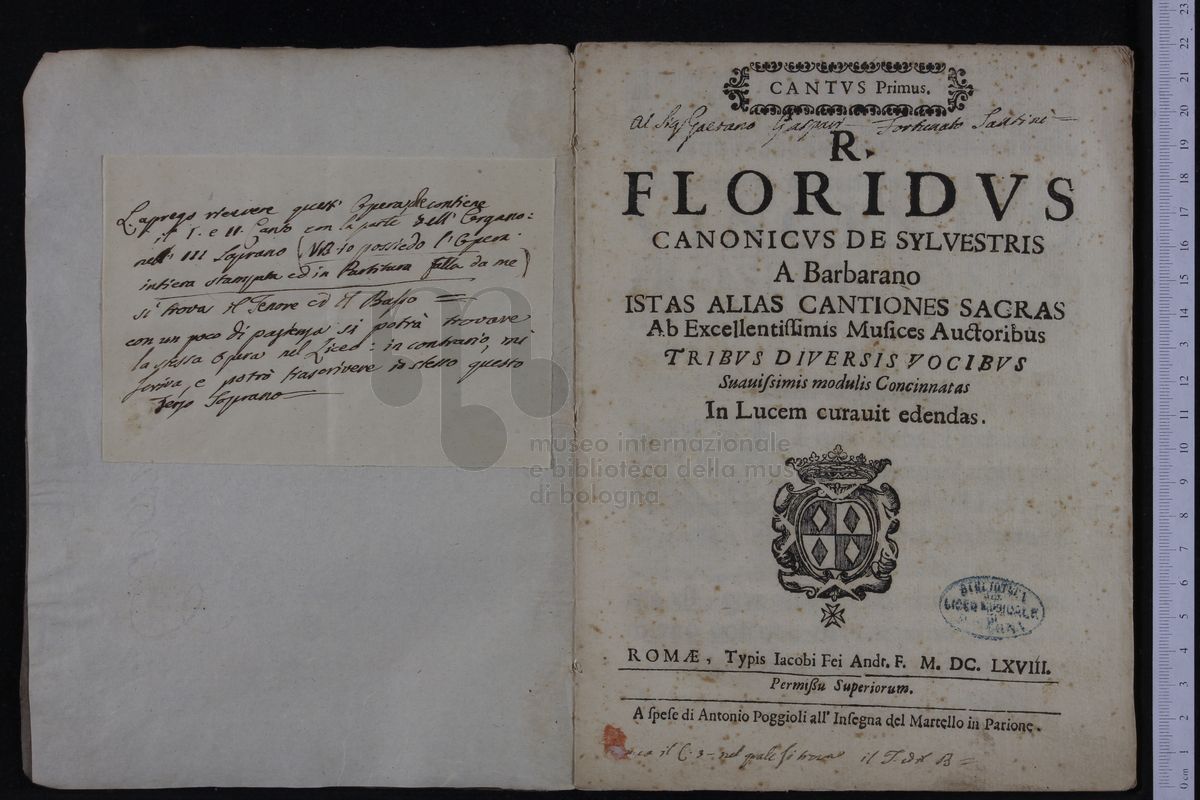 La prego ricevere quest' Opera, che contiene
il I. e II. Canto con la parte dell' Organo:
nell' III Soprano (NB. io possiedo l'Opera
intiera stampata ed in Partitura fatta da me)
si trova il Tenore ed il Basso =
con un poco di pazienza si potrà trovare
la stessa Opera nel Liceo: in contrario, mi
scriva, e potrò trascrivere io stesso questo
terzo Soprano
museo internazionale
e biblioteca della mus
di bologna
CANTVS Primus.
Al Sig. Gaetano Gaspari Fortunato Santini
R.
FLORIDVS
CANONICVS DE SYLVESTRIS
A Barbarano
ISTAS ALIAS CANTIONES SACRAS
Ab Excellentissimis Musices Auctoribus
TRIBVS DIVERSIS VOCIBVS
Suauissimis modulis Concinnatas
In Lucem curauit edendas.
BIBLIOTECA
DEL
LICEO MUSICALE
DI
ROMÆ, Typis Iacobi Fei Andr. F. M. DC. LXVIII.
Permissu Superiorum.
A spese di Antonio Poggioli all' Insegna del Martello in Parione.
il C. 3 - nel quale si trova il T. ed il B =
0 cm 1 2 3 4 5 6 7 8 9 10 11 12 13 14 15 16 17 18 19 20 21 22 23